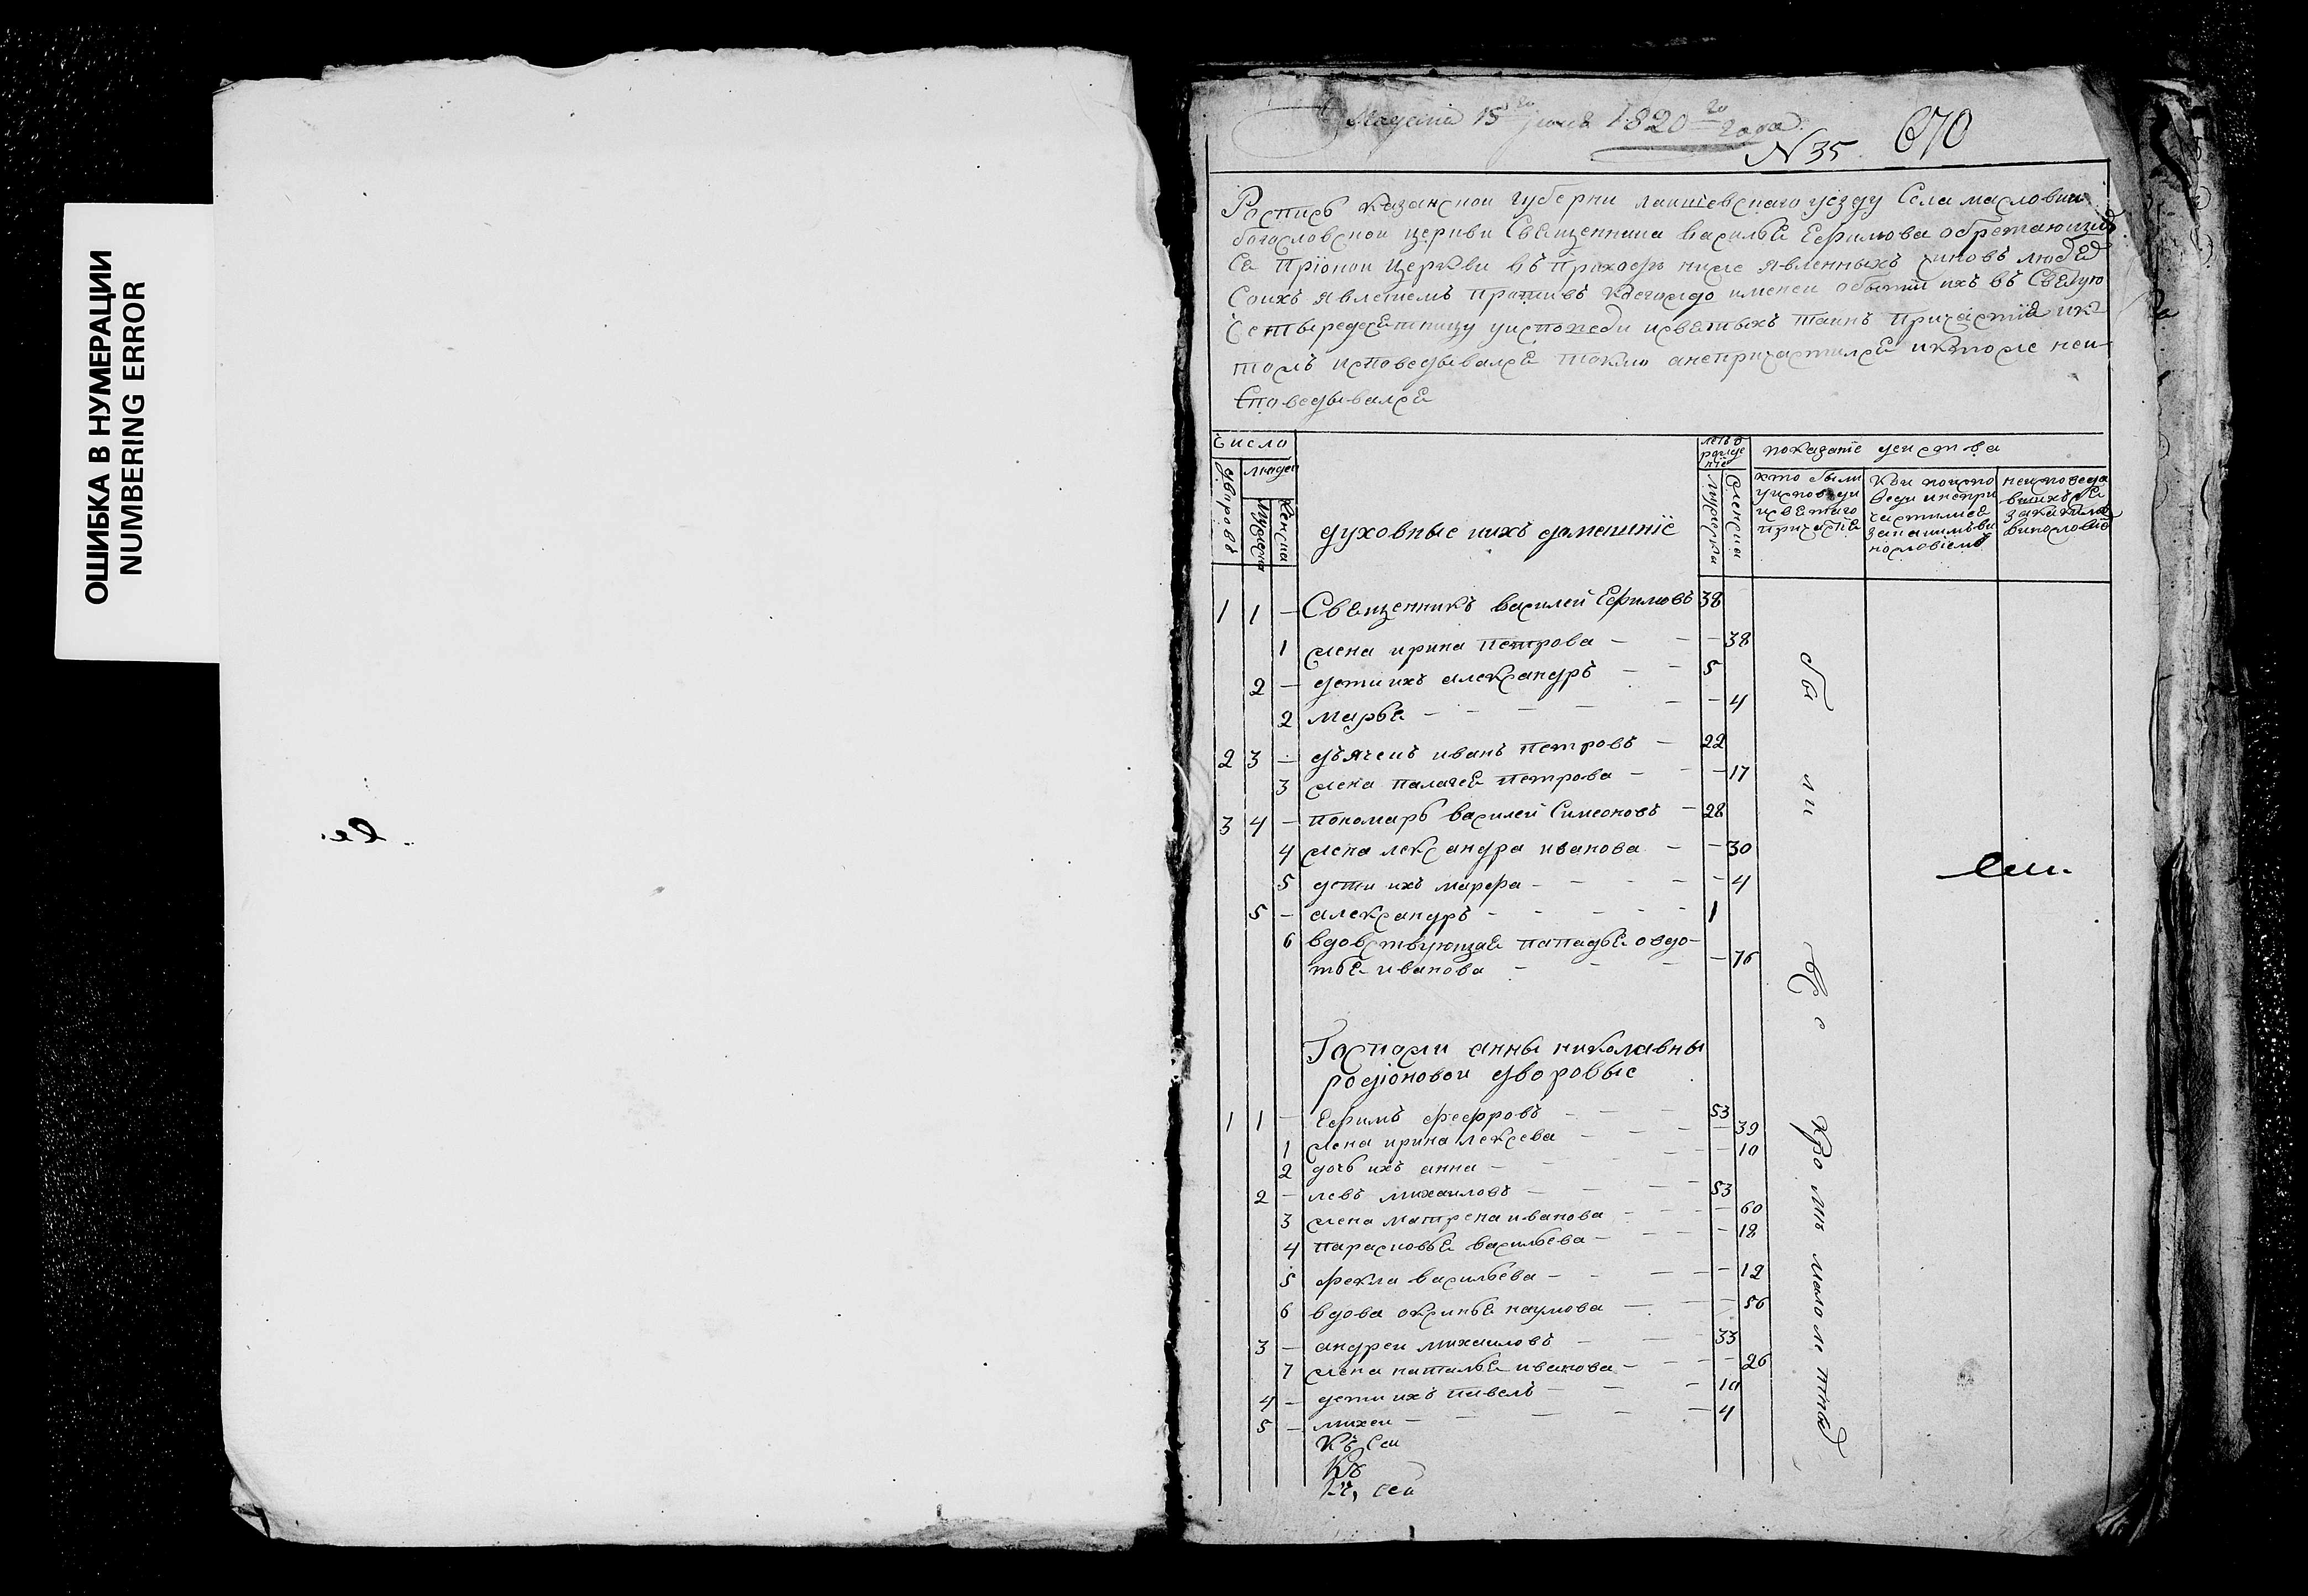 ОШИБКА В НУМЕРАЦИИ
NUMBERING ERROR
15го 1820го года.
N 35. 670
Роспись казанской губерни лаишевскаго уезду Села масловки
богословской церкви Священника василья Ефимова обретающих
ся при оной церкви въ приходе ниже явленныхъ чиновъ людей
соихъ явлениемъ противъ коегождо имени о бытии ихъ въ Святую
четыредесятницу у исповеди и святыхъ таинъ причастия и кто
исповедывался токмо а не причастился и кто же неи-
споведывался
Число
людей
дворовъ
мужска
женска
духовные и ихъ домашние
летъ рождения
мужески
женска
показание действа
кто были у исповеди и святаго причастия
Кои по исповеди и не причастились за каким виновством
не исповедавшихся за каким виновством
1 1 — Священникъ василей Ефимовъ 38
1 жена ирина петрова — — — 38
2 — дети ихъ александръ — — 5
2 марья — — — — — 4
2 3 — дьячекъ иванъ петровъ — 22
3 жена палагея петрова — — 17
3 4 — пономарь василей Симеоновъ — 28
4 жена лександра иванова — — 30
5 дети ихъ марфа — — — — — 4
5 — александръ — — — — — 1
6 вдовствующая пападья овдо-
тья иванова — — — — 76
Госпожи анны николавны
родионовой дворовые
1 1 — Ефимъ федоровъ — — — 53
1 жена ирина лексева — — — — 39
2 дочь ихъ анна — — — — 10
2 — левъ михаиловъ — — — 53
3 жена матрена иванова — — — 60
4 парасковья васильева — — — 18
5 фекла васильева — — — — 12
6 вдова оксинья наумова — — — 56
3 — андреи михаиловъ — — 33
7 жена наталья иванова — — — 26
4 — дети ихъ павелъ — — — 10
5 — михеи — — — — — 4
Къ сей
Къ
Къ сей
бы ли все кроме малолетныхъ